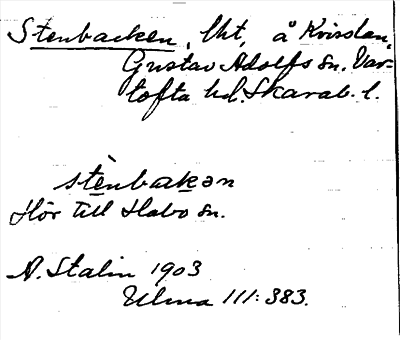 Stenbacken, lht, å Kvislan,
Gustav Adolfs sn. Var-
tofta hd. Skarab. l.
stènbakən
Hör till Habo sn.
A. Stalin 1903
Ulma 111:383.